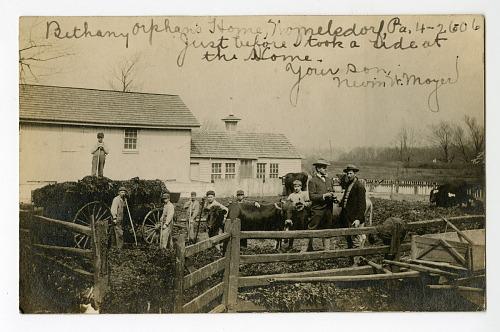 Bethany Orphan's Home, Womelsdorf, Pa, 4-26 06
just before I took a ride at
the Home.
Your Son,
Nevin W. Moyer